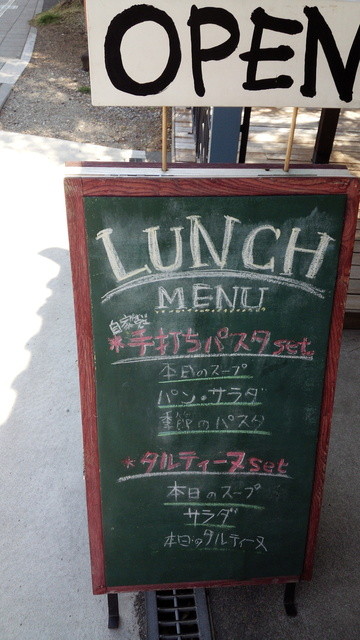 OPEN
LUNCH
MENU
自家製
*手打ちパスタset
本日のスープ
パン・サラダ
季節のパスタ
*タルティーヌset
本日のスープ
サラダ
本日のタルティーヌ